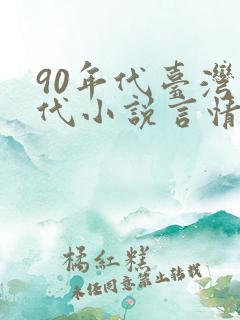 90年代臺灣
代小說言情
橘紅糕
未经同意禁止转载